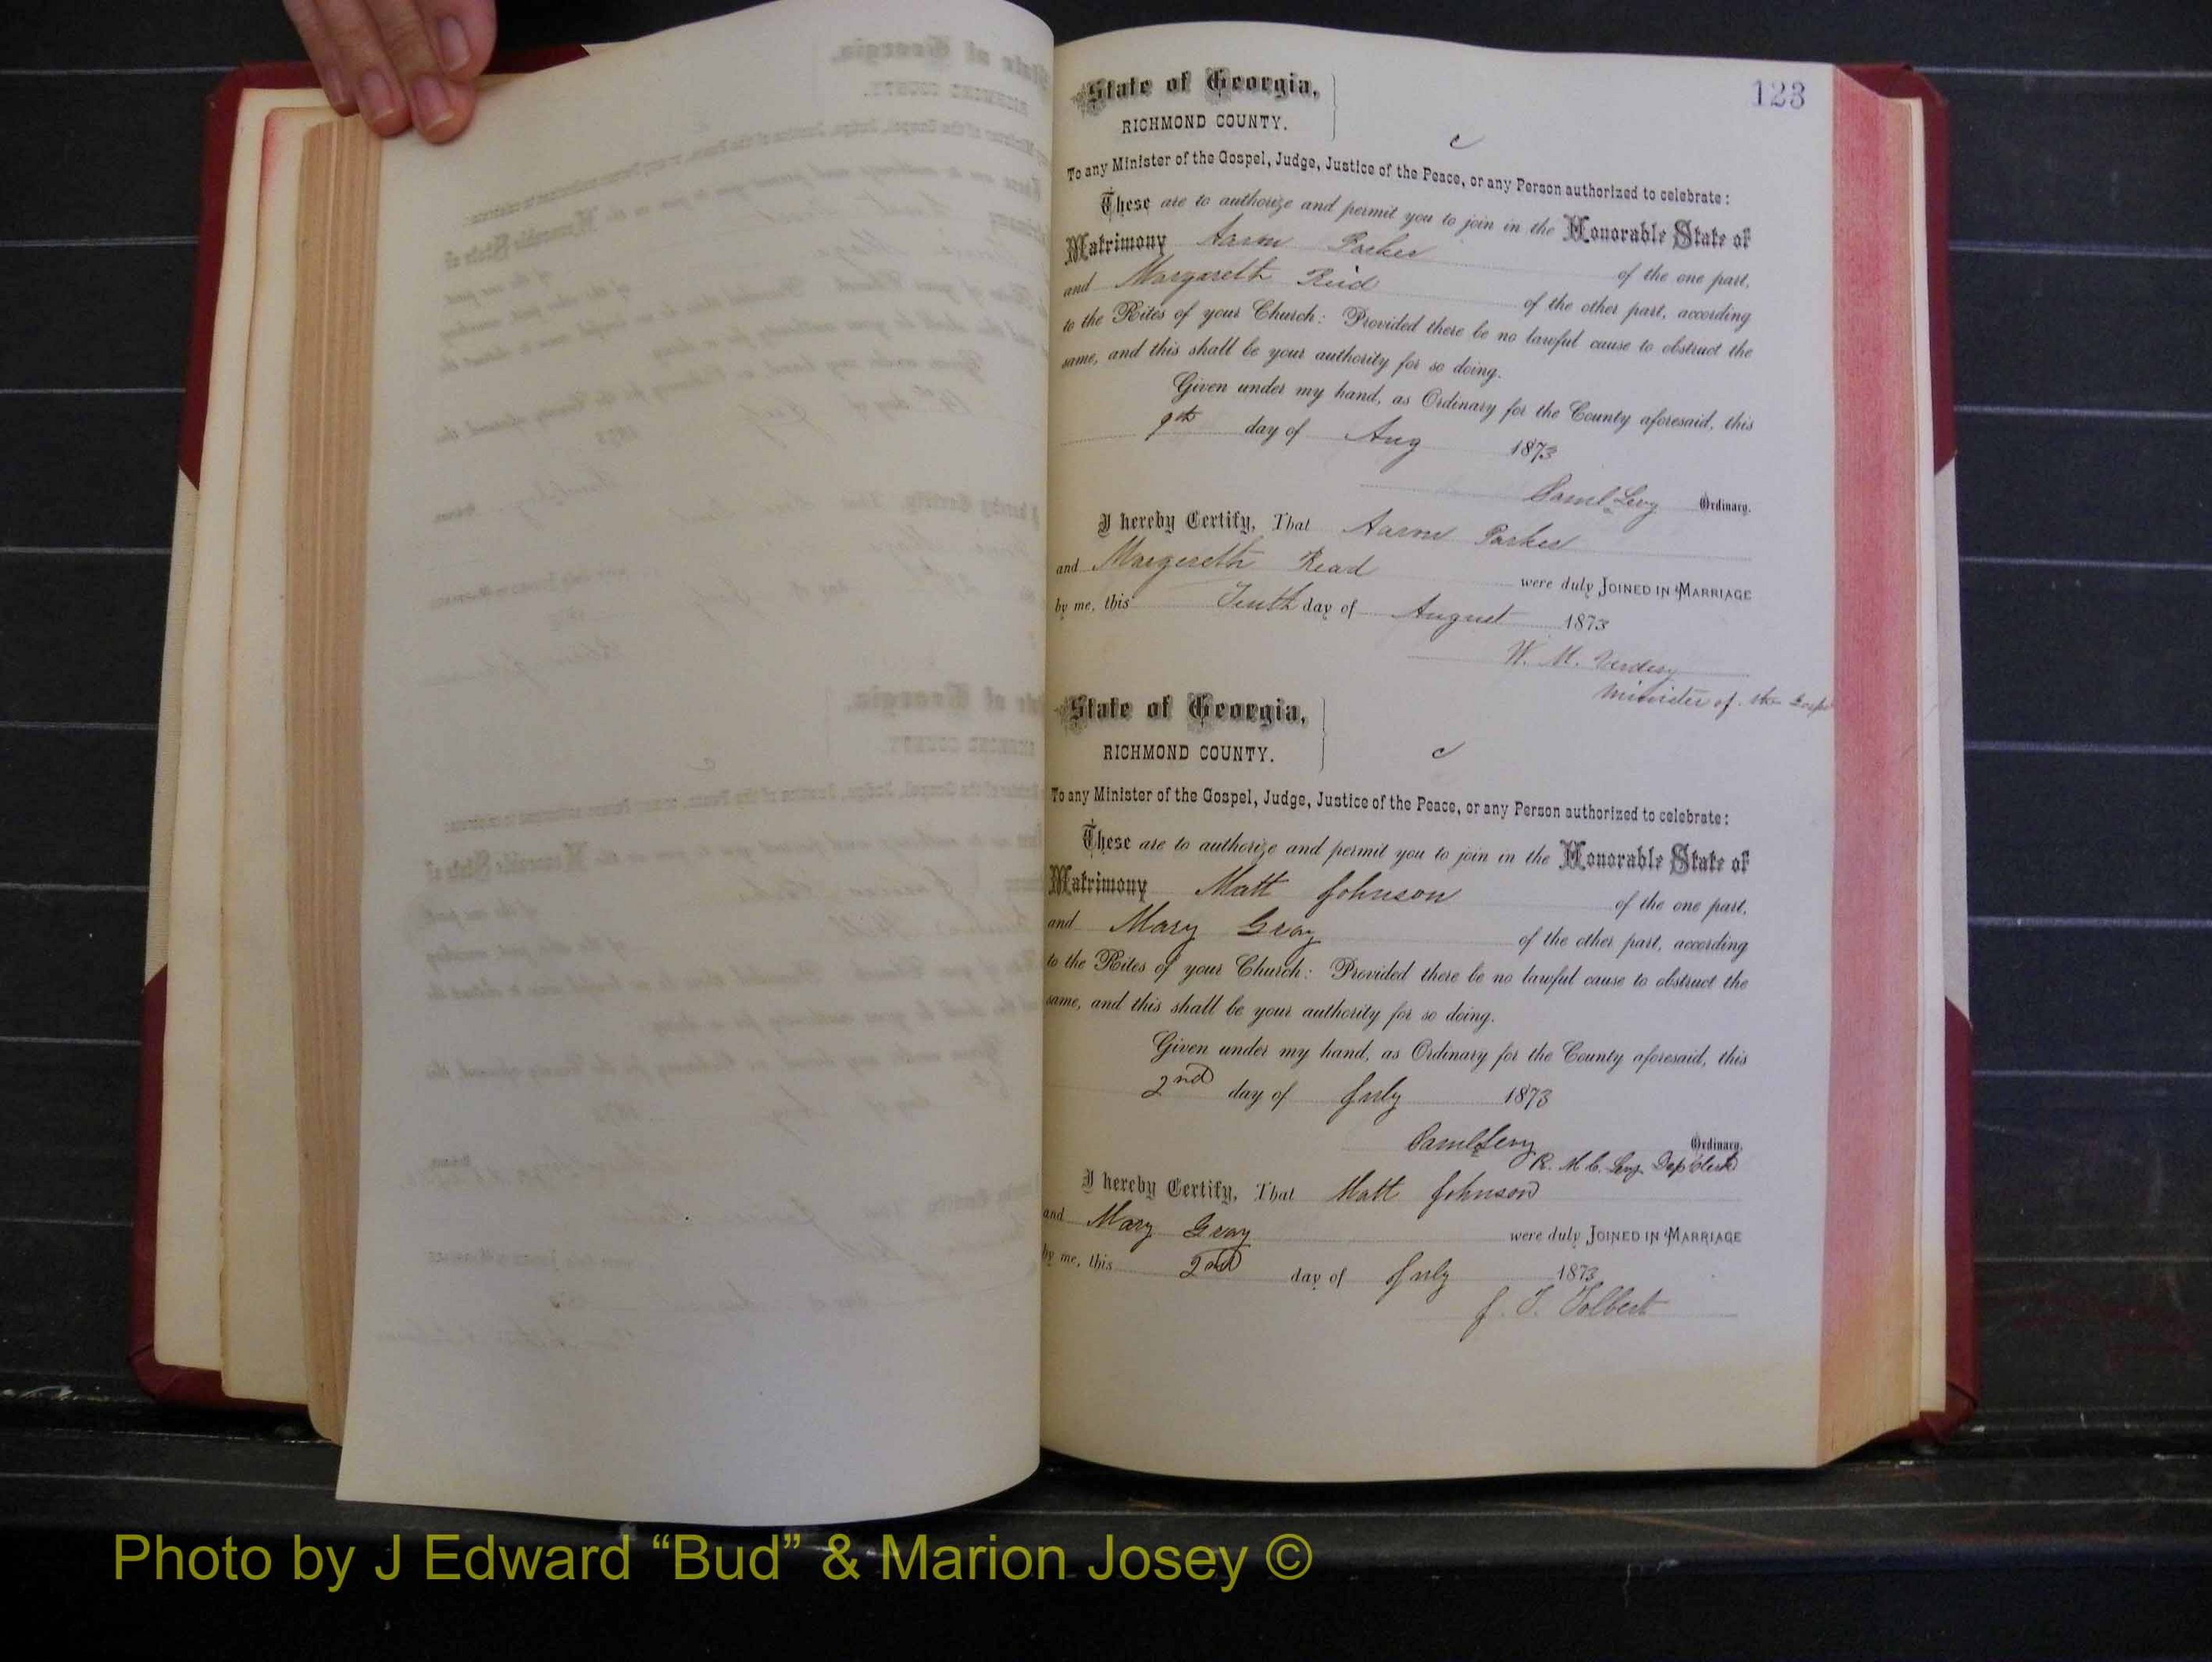 123
State of Georgia,
RICHMOND COUNTY.
c
To any Minister of the Gospel, Judge, Justice of the Peace, or any Person authorized to celebrate:
These are to authorize and permit you to join in the Honorable State of
Matrimony Aaron Parker of the one part,
and Margareth Reid of the other part, according
to the Rites of your Church: Provided there be no lawful cause to obstruct the
same, and this shall be your authority for so doing.
Given under my hand, as Ordinary for the County aforesaid, this
9th day of Aug 1873
Saml Levy Ordinary.
I hereby Certify, That Aaron Parker
and Margereth Read were duly JOINED IN MARRIAGE
by me, this Tenth day of August 1873
W. M. Verdery
Minister of the Gosp
State of Georgia,
RICHMOND COUNTY.
c
To any Minister of the Gospel, Judge, Justice of the Peace, or any Person authorized to celebrate:
These are to authorize and permit you to join in the Honorable State of
Matrimony Matt Johnson of the one part,
and Mary Gray of the other part, according
to the Rites of your Church: Provided there be no lawful cause to obstruct the
same, and this shall be your authority for so doing.
Given under my hand, as Ordinary for the County aforesaid, this
2nd day of July 1873
Saml Levy Ordinary.
R. M. C. Levy Dep Clerk
I hereby Certify, That Matt Johnson
and Mary Gray were duly JOINED IN MARRIAGE
by me, this 2nd day of July 1873
J. T. Tolbert
Photo by J Edward “Bud” & Marion Josey ©